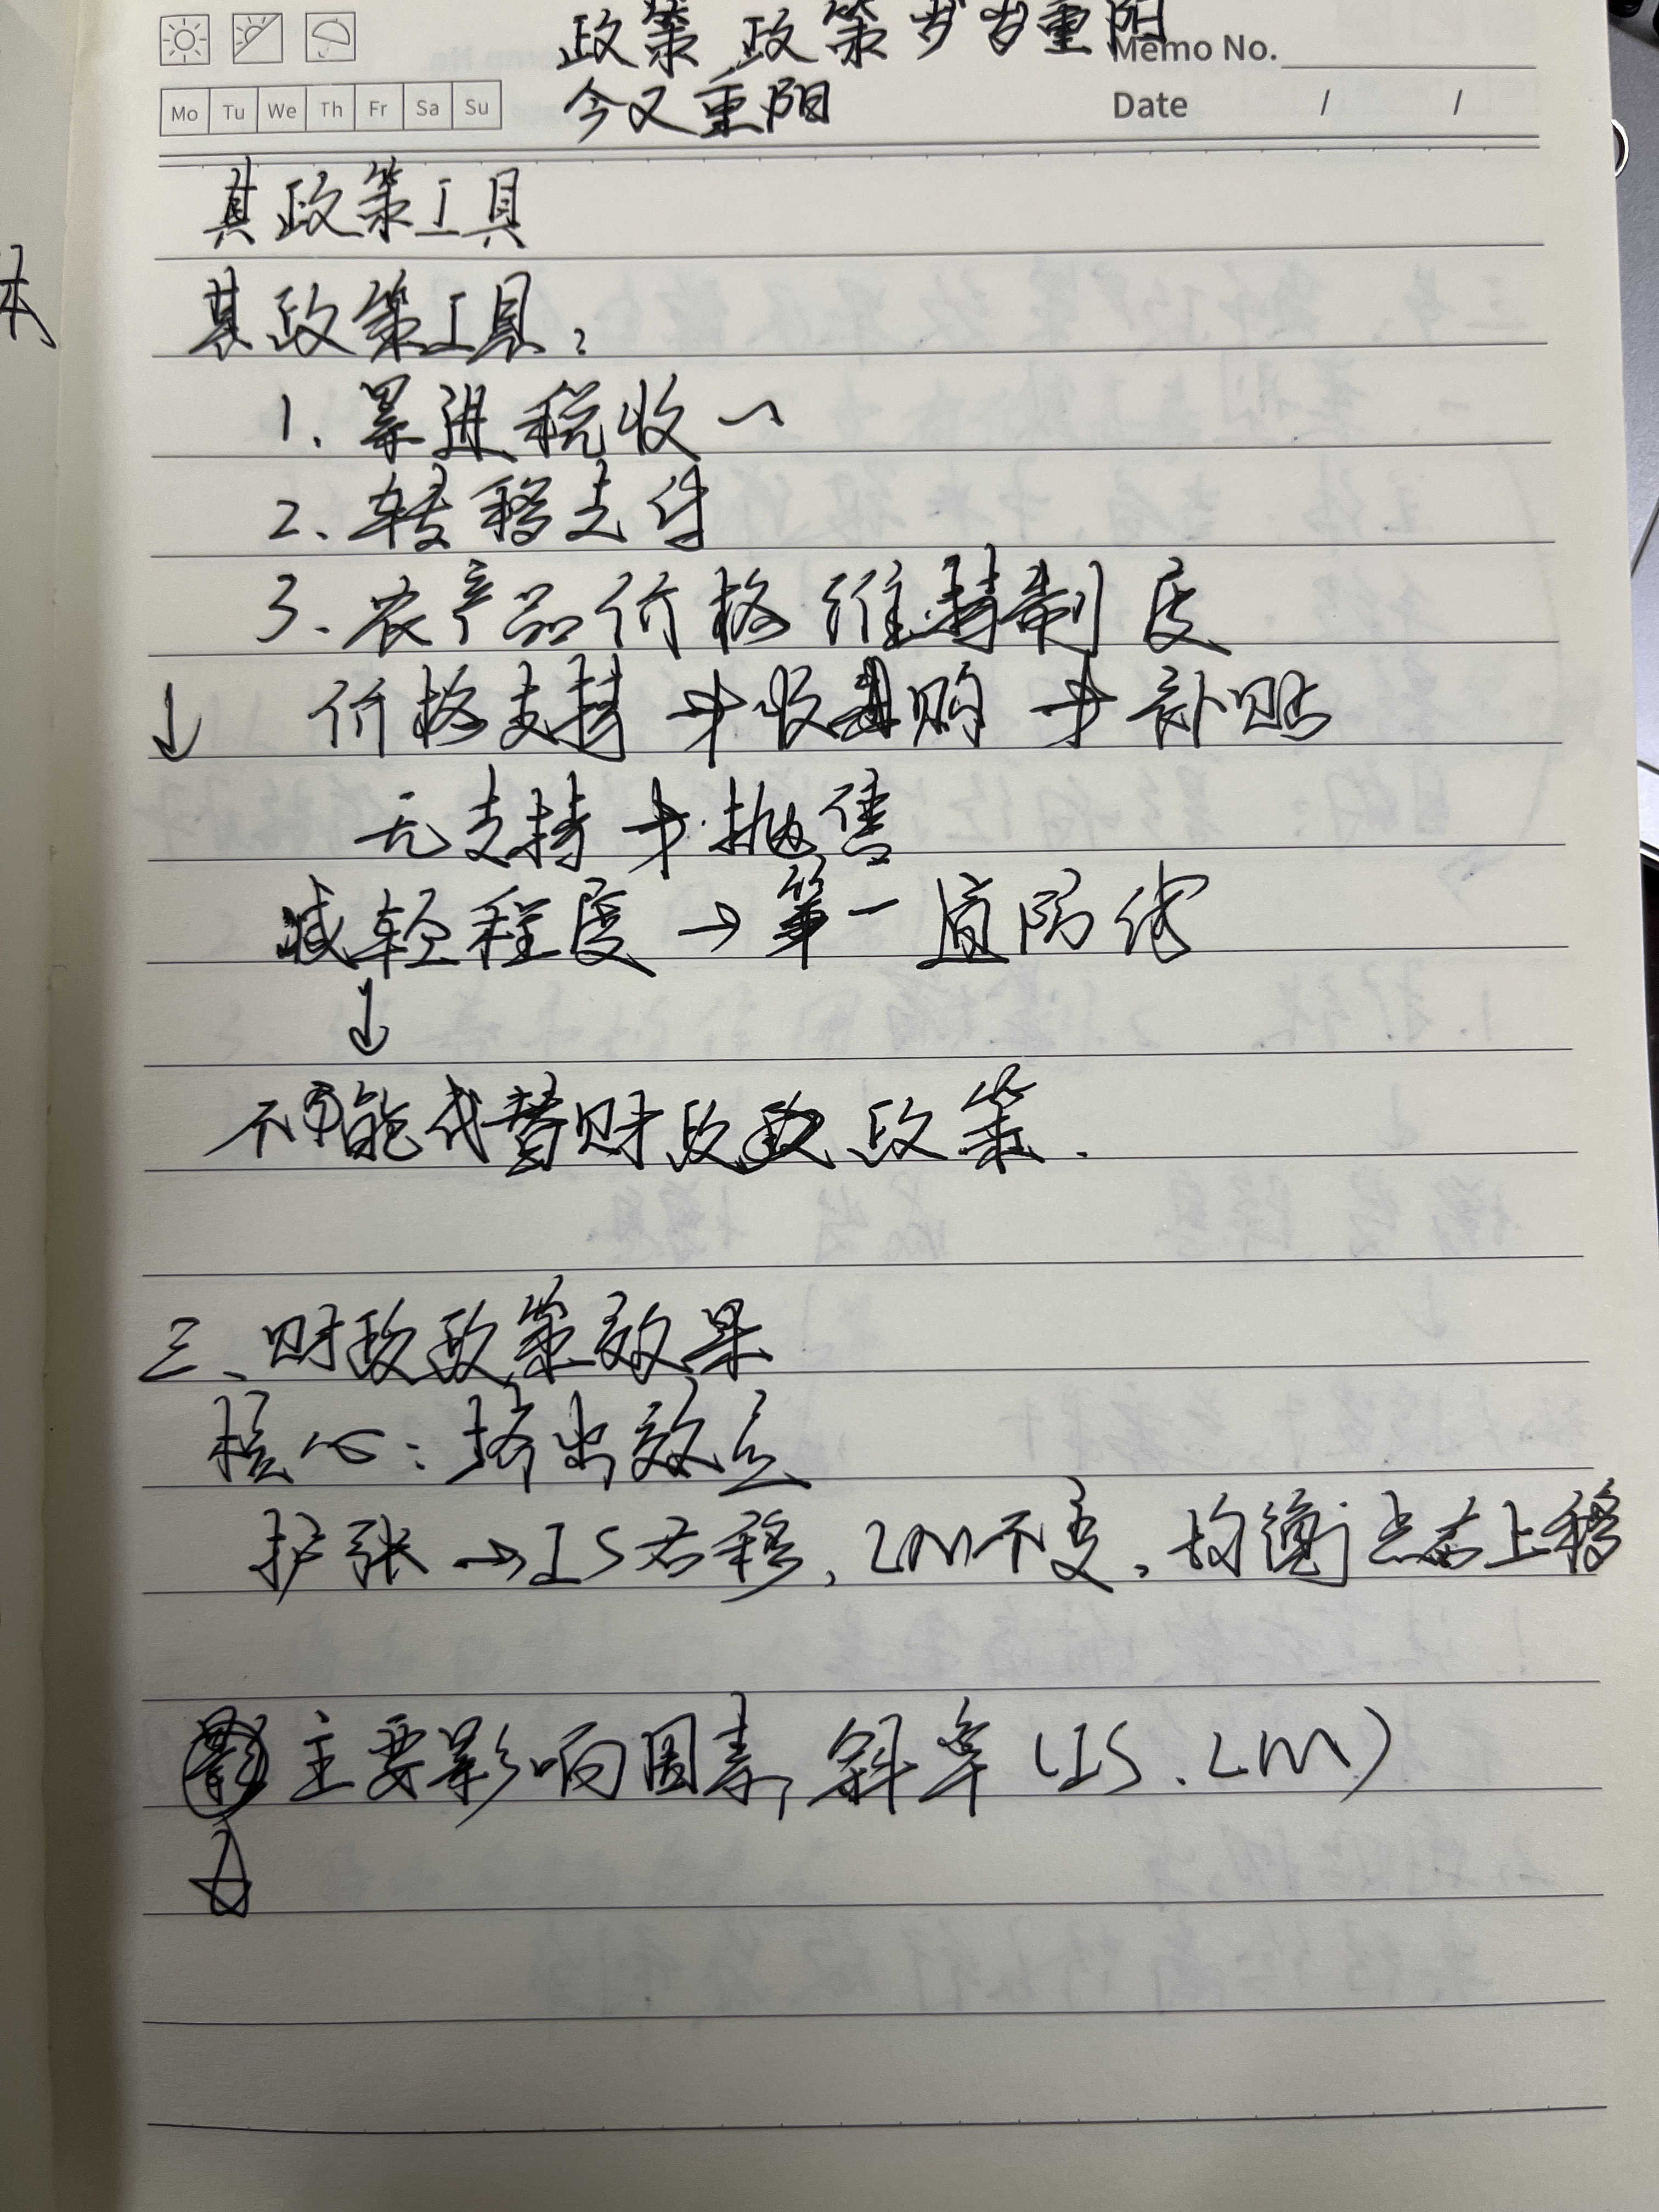 政策 政策 岁岁重阳
Memo No.
今又重阳
Date / /
Mo Tu We Th Fr Sa Su
其政策工具
其政策工具:
1. 累进税收
2. 转移支付
3. 农产品价格维持制度
↓ 价格支持 → 收购 → 补贴
无支持 → 抛售
减轻程度 → 第一道防线
↓
不可能代替财政政策.
三、财政政策效果
核心: 挤出效应
扩张 → IS右移, LM不变, 均衡点右上移
主要影响因素, 斜率 (IS、LM)
本